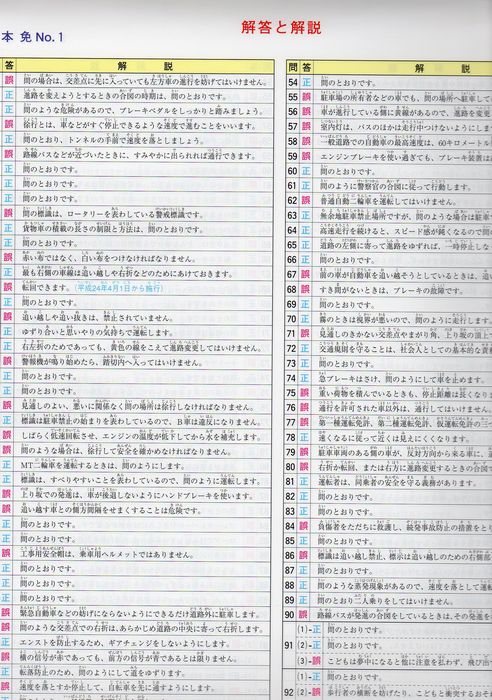 解答と解説
本 免 No.1
答 解 説
誤 間の場合は、交差点に先に入っていても左方車の進行を妨げてはいけません。
正 進路を変えようとするときの合図の時期は、問のとおりです。
正 問のような危険があるので、ブレーキペダルをしっかりと踏みましょう。
誤 徐行とは、車などがすぐ停止できるような速度で進むことをいいます。
正 問のとおり、トンネルの手前で速度を落としましょう。
誤 路線バスなどが近づいたときに、すみやかに出られれば通行できます。
正 問のとおりです。
正 問のとおりです。
正 問のとおりです。
誤 問の標識は、ロータリーを表わしている警戒標識です。
正 貨物車の積載の長さの制限と方法は、問のとおりです。
正 問のとおりです。
誤 赤い布ではなく、白い布をつけなければなりません。
正 最も右側の車線は追い越しや右折などのためにあけておきます。
誤 転回できます。(平成24年4月1日から施行)
正 問のとおりです。
誤 追い越しや追い抜きは、禁止されていません。
正 ゆずり合いと思いやりの気持ちで運転します。
正 右左折のためであっても、黄色の線をこえて進路変更してはいけません。
誤 警報機が鳴り始めたら、踏切内へ入ってはいけません。
正 問のとおりです。
正 問のとおりです。
誤 見通しのよい、悪いに関係なく問の場所は徐行しなければなりません。
正 標識は駐車禁止の始まりを表わしているので、B車は違反になります。
誤 しばらく低速回転させ、エンジンの温度が低下してから水を補充します。
誤 問のような場合は、徐行して安全を確かめなければなりません。
正 MT二輪車を運転するときは、問のようにします。
正 標識は、すべりやすいことを表わしているので、問のようにします。
誤 上り坂での発進は、車が後退しないようにハンドブレーキを使います。
誤 追い越す車との側方間隔をせまくすることは危険です。
正 問のとおりです。
正 問のとおりです。
誤 工事用安全帽は、乗車用ヘルメットではありません。
正 問のとおりです。
正 問のとおりです。
正 問のとおりです。
誤 緊急自動車などの妨げにならないようにできるだけ道路外に駐車します。
誤 問のような交差点での右折は、あらかじめ道路の中央に寄って右折します。
正 エンストを防止するため、ギアチェンジをしないようにします。
誤 横の信号が赤であっても、前方の信号が青であるとは限りません。
正 転落防止のため、問のようにして道をゆずります。
誤 速度を落とすか停止して、自転車を先に通すようにします。
問 答 解 説
54 正 問のとおりです。
55 誤 駐車場の所有者などの車でも、問の場所へ駐車して
56 誤 車が進行している側に黄線があるので、進路を変更
57 誤 室内灯は、バスのほかは走行中つけないようにしま
58 誤 一般道路での自動車の最高速度は、60キロメートル
59 誤 エンジンブレーキを使い過ぎても、ブレーキ装置は
60 正 問のとおりです。
61 正 問のように警察官の合図に従って行動します。
62 誤 普通自動二輪車を運転してはいけません。
63 正 無余地駐車禁止場所ですが、問のような場合は駐車
64 正 高速走行を続けると、スピード感が鈍くなるので問
65 正 道路の左側に寄って進路をゆずれば、一時停止しな
66 正 問のとおりです。
67 誤 前の車が自動車を追い越そうとしているときは、追
68 誤 すき間がないときは、ブレーキの故障です。
69 正 問のとおりです。
70 正 霧のときは視界が悪いので、問のように走行します。
71 誤 見通しのきかない交差点やまがり角、上り坂の頂上
72 正 交通規則を守ることは、社会人としての基本的な責
73 正 問のとおりです。
74 正 急ブレーキはさけ、問のようにして車を止めます。
75 誤 重い荷物を積んでいるときも、停止距離は長くなり
76 誤 通行を許可された車以外は、通行してはいけません。
77 誤 第一種運転免許、第二種運転免許、仮運転免許の三つ
78 正 速くなるに従って近くは見えにくくなります。
79 誤 駐車車両のある側の車が、反対方向から来る車に、道
80 誤 右折か転回、または右方に進路変更するときの合図で
81 正 運転者は、同乗者の安全を守る義務があります。
82 正 問のとおりです。
83 正 問のとおりです。
84 誤 負傷者をただちに救護し、続発事故防止の措置をとり
85 正 問のとおりです。
86 誤 標識は追い越し禁止、標示は追い越しのための右側部
87 正 問のとおりです。
88 正 問のような蒸発現象があるので、速度を落として運転
89 正 問のように二人乗りをしてはいけません。
90 誤 路線バスが発進の合図をしているときは、その発進を
91 (1)-正 問のとおりです。
(2)-正 問のとおりです。
(3)-誤 こどもは夢中になると他に注意を払わず、飛び出
92 (1)-正 問のとおりです。
(2)-正 歩行者の横断を妨げたり、こどもと衝突するおそれ